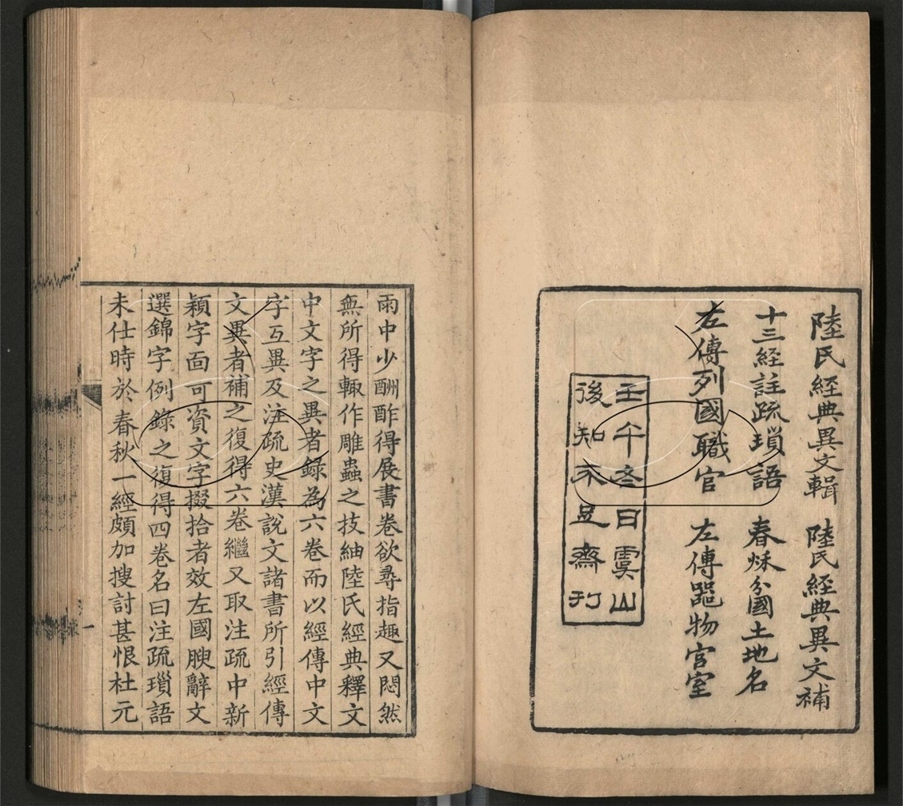 陸氏經典異文輯　陸氏經典異文補
十三経註疏瑣語　春秌分國土地名
左傳列國職官　左傳噐物宫室
壬午冬日虞山
後知不足齋刊
雨中少酬酢得展書卷欲尋指趣又悶然
無所得輙作雕蟲之技紬陸氏經典釋文
中文字之異者録為六卷而以經傳中文
字互異及注疏史漢說文諸書所引經傳
文異者補之復得六卷繼又取注疏中新
穎字面可資文字掇拾者效左國腴辭文
選錦字例錄之復得四卷名曰注疏瑣語
未仕時於春秋一經頗加搜討甚恨杜元